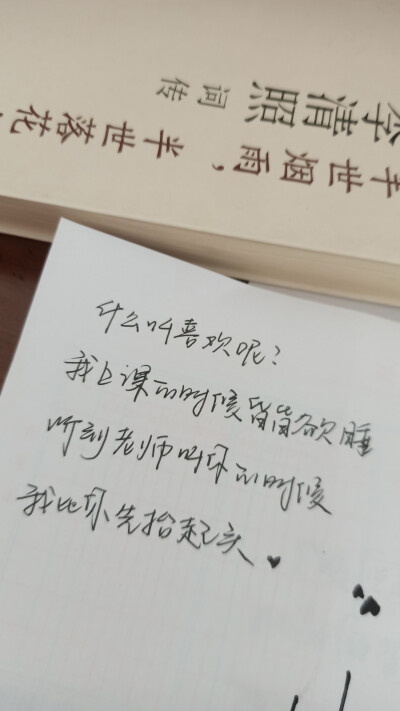 半世烟雨，半世落花
李清照 词传
什么叫喜欢呢？
我上课的时候昏昏欲睡
听到老师叫你的时候
我比你先抬起头